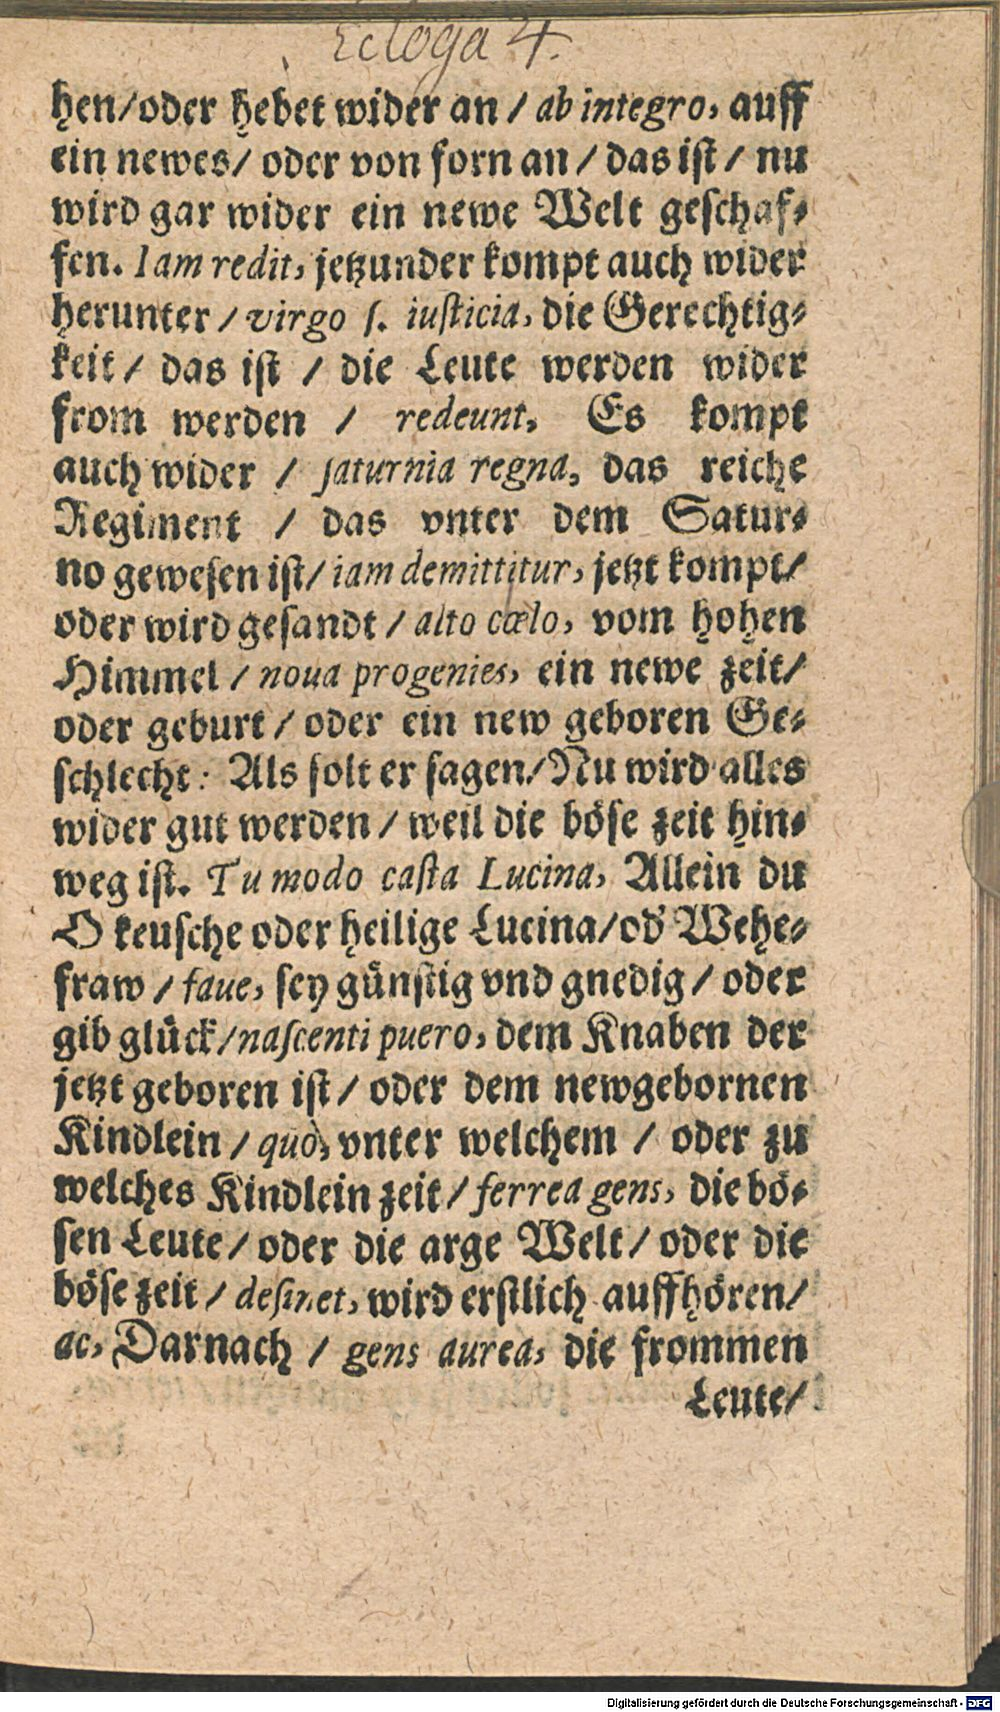 Ecloga 4.
hen/oder hebet wider an / ab integro, auff
ein newes/ oder von forn an / das ist / nu
wird gar wider ein newe Welt geschaf⸗
fen. Iam redit, jetzunder kompt auch wider
herunter / virgo ſ. iuſticia, die Gerechtig⸗
keit / das ist / die Leute werden wider
from werden / redeunt, Es kompt
auch wider / ſaturnia regna, das reiche
Regiment / das vnter dem Satur⸗
no gewesen ist/ iam demittitur, jetzt kompt/
oder wird gesandt / alto cœlo, vom hohen
Himmel / noua progenies, ein newe zeit/
oder geburt / oder ein new geboren Ge⸗
schlecht: Als solt er sagen/ Nu wird alles
wider gut werden / weil die böse zeit hin⸗
weg ist. Tu modo caſta Lucina, Allein du
O keusche oder heilige Lucina/od' Wehe⸗
fraw / faue, sey günstig vnd gnedig / oder
gib glück/naſcenti puero, dem Knaben der
jetzt geboren ist / oder dem newgebornen
Kindlein / quò, vnter welchem / oder zu
welches Kindlein zeit / ferrea gens, die bö⸗
sen Leute / oder die arge Welt / oder die
böse zeit / deſinet, wird erstlich auffhören/
ac, Darnach / gens aurea, die frommen
Leute/
Digitalisierung gefördert durch die Deutsche Forschungsgemeinschaft - DFG